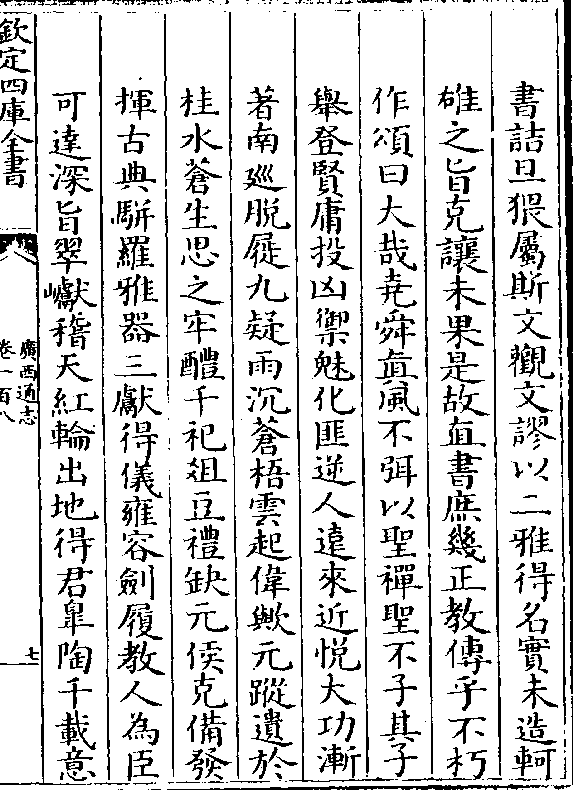 書詰旦猥屬斯文觀文謬以二雅得名實未造軻
雄之旨克讓未果是故直書庶幾正教傳乎不朽
作頌曰大哉堯舜直風不弭以聖禪聖不子其子
舉登賢庸投凶禦魅化匪逆人遠來近悅大功漸
著南廵脫屣九疑雨沉蒼梧雲起偉歟元蹤遺於
桂水蒼生思之牢醴千祀俎豆禮缺元侯克備發
揮古典駢羅雅器三獻得儀雍容劍履教人為臣
可達深旨翠巘稽天紅輪出地得君臯陶千載意
欽定四庫全書
廣西通志
卷一百八
七